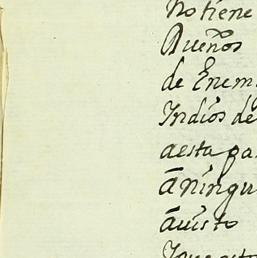 no tiene
Dueños
de Enem
Indios de
aesta pa
āningu
āuisto